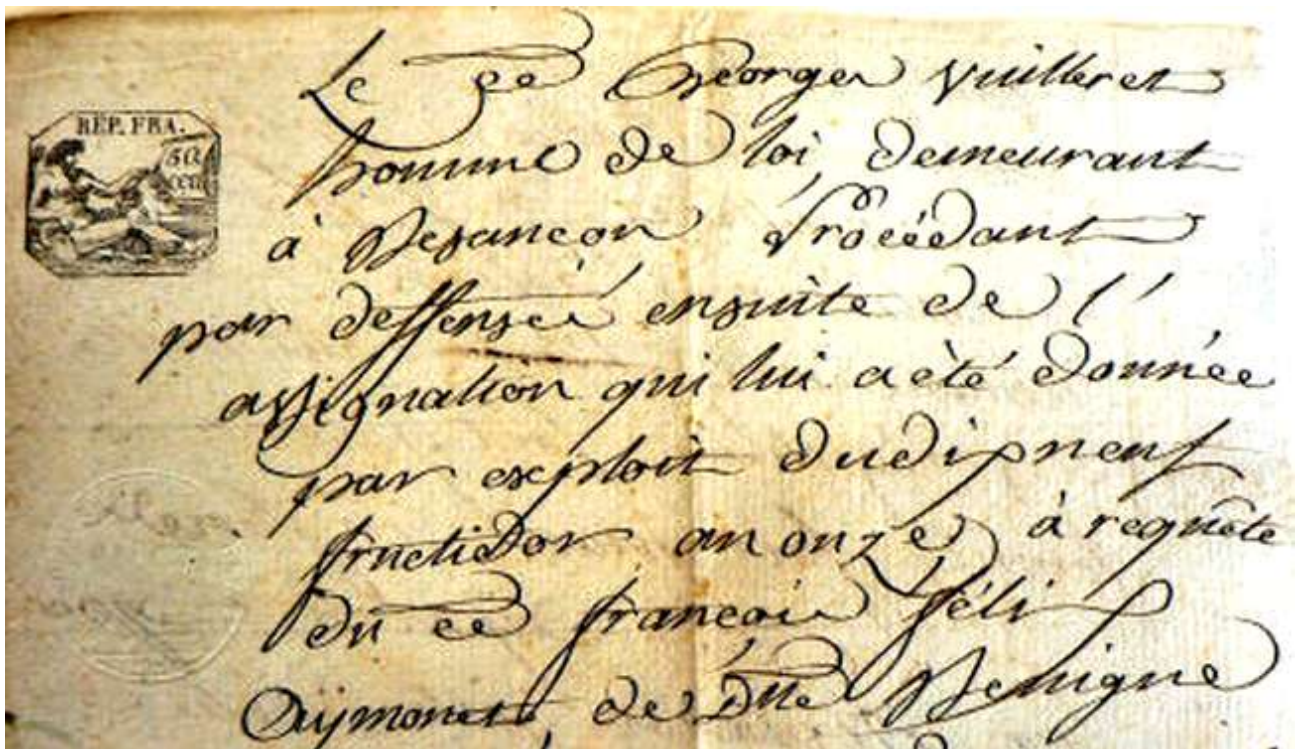 REP. FRA.
Le Georges Vuilleret
homme de loi, demeurant
à Besançon Procédant
par deffenses ensuite de l'
assignation qui lui a été donnée
par exploit du dix neuf
fructidor an onze, à requête
du françois féli
Aymonet, de Dlle Benigne